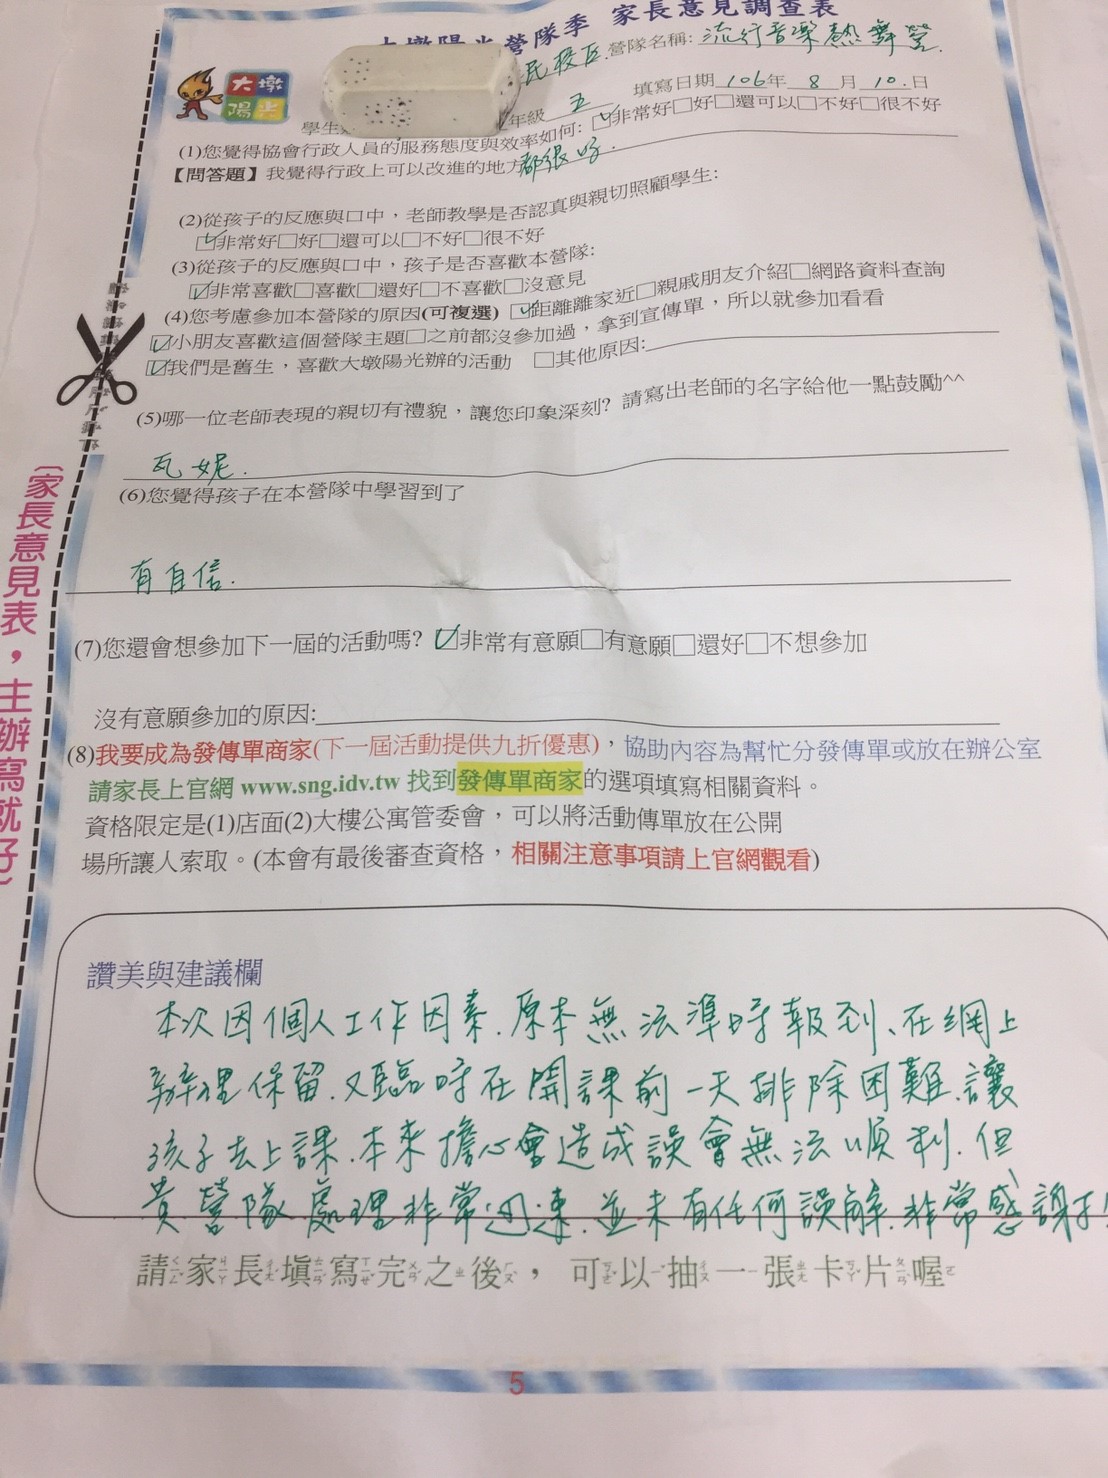 大墩陽光營隊季 家長意見調查表
民校區 營隊名稱: 流行音樂熱舞營.
大墩陽光
學生 年級 五 填寫日期 106年 8 月 10. 日
(1)您覺得協會行政人員的服務態度與效率如何: ☑非常好□好□還可以□不好□很不好
【問答題】我覺得行政上可以改進的地方 都很好.
(2)從孩子的反應與口中，老師教學是否認真與親切照顧學生:
☑非常好□好□還可以□不好□很不好
(3)從孩子的反應與口中，孩子是否喜歡本營隊:
☑非常喜歡□喜歡□還好□不喜歡□沒意見
(4)您考慮參加本營隊的原因(可複選) ☑距離離家近□親戚朋友介紹□網路資料查詢
☑小朋友喜歡這個營隊主題□之前都沒參加過，拿到宣傳單，所以就參加看看
☑我們是舊生，喜歡大墩陽光辦的活動 □其他原因:
(5)哪一位老師表現的親切有禮貌，讓您印象深刻? 請寫出老師的名字給他一點鼓勵^^
瓦妮.
(6)您覺得孩子在本營隊中學習到了
有自信.
(7)您還會想參加下一屆的活動嗎? ☑非常有意願□有意願□還好□不想參加
沒有意願參加的原因:
(8)我要成為發傳單商家(下一屆活動提供九折優惠)，協助內容為幫忙分發傳單或放在辦公室
請家長上官網 www.sng.idv.tw 找到發傳單商家的選項填寫相關資料。
資格限定是(1)店面(2)大樓公寓管委會，可以將活動傳單放在公開
場所讓人索取。(本會有最後審查資格，相關注意事項請上官網觀看)
(家長意見表，主辦寫就好)
讚美與建議欄
本次因個人工作因素.原本無法準時報到、在網上
辦理保留.又臨時在開課前一天排除困難.讓
孩子去上課.本來擔心會造成誤會無法順利.但
貴營隊處理非常迅速.並未有任何誤解.非常感謝
請家長填寫完之後，可以抽一張卡片喔
5